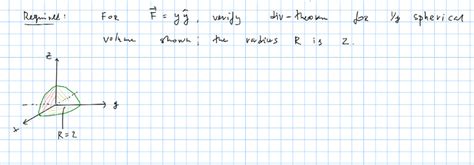 Required: For F⃗ = yŷ, verify div-theorem for 1/8 spherical
volume shown; the radius R is 2.
z
y
x
R=2